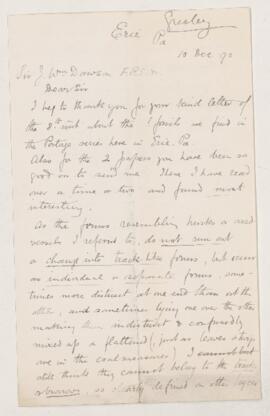 Gresley
Erie
Pa
10 Dec 90
Sir J. Wm Dawson F.R.S.
Dear Sir
I beg to thank you for your kind letter of
the 8th inst about the fossils we find in
the Portage series here in Erie, Pa.
Also for the 2 papers you have been so
good as to send me. These I have read
over a time or two and found most
interesting.
As the forms resembling
vessels I referred to, do not run out
or change into like forms, but occur
as individual or separate forms, some-
times more distinct at one end than at the
other, and sometimes lying one over the other
making them indistinct & confusedly
mixed up & flattened (just as leaves & things
are in the coal measures) I cannot but
still think they cannot belong to the
, so clearly defined in other layers